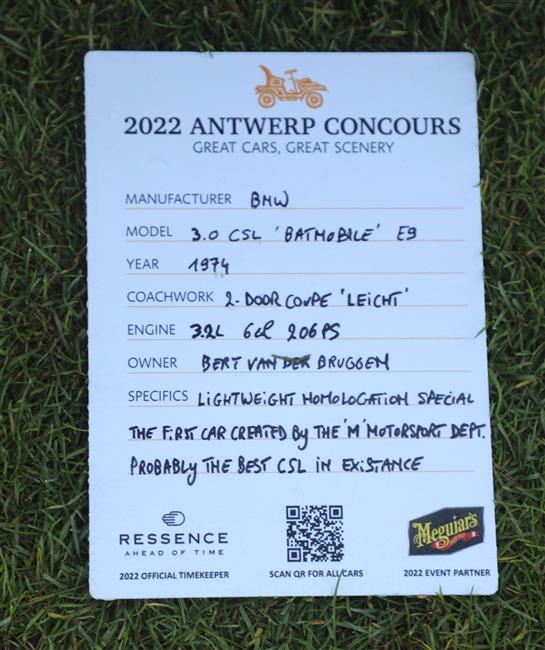 2022 ANTWERP CONCOURS
GREAT CARS, GREAT SCENERY
MANUFACTURER BMW
MODEL 3.0 CSL 'BATMOBILE' E9
YEAR 1974
COACHWORK 2-DOOR COUPE 'LEICHT'
ENGINE 3.2L 6cil 206PS
OWNER BERT VAN DER BRUGGEN
SPECIFICS LIGHTWEIGHT HOMOLOGATION SPECIAL
THE FIRST CAR CREATED BY THE 'M' MOTORSPORT DEPT.
PROBABLY THE BEST CSL IN EXISTANCE
RESSENCE
AHEAD OF TIME
Meguiar's
2022 OFFICIAL TIMEKEEPER
SCAN QR FOR ALL CARS
2022 EVENT PARTNER